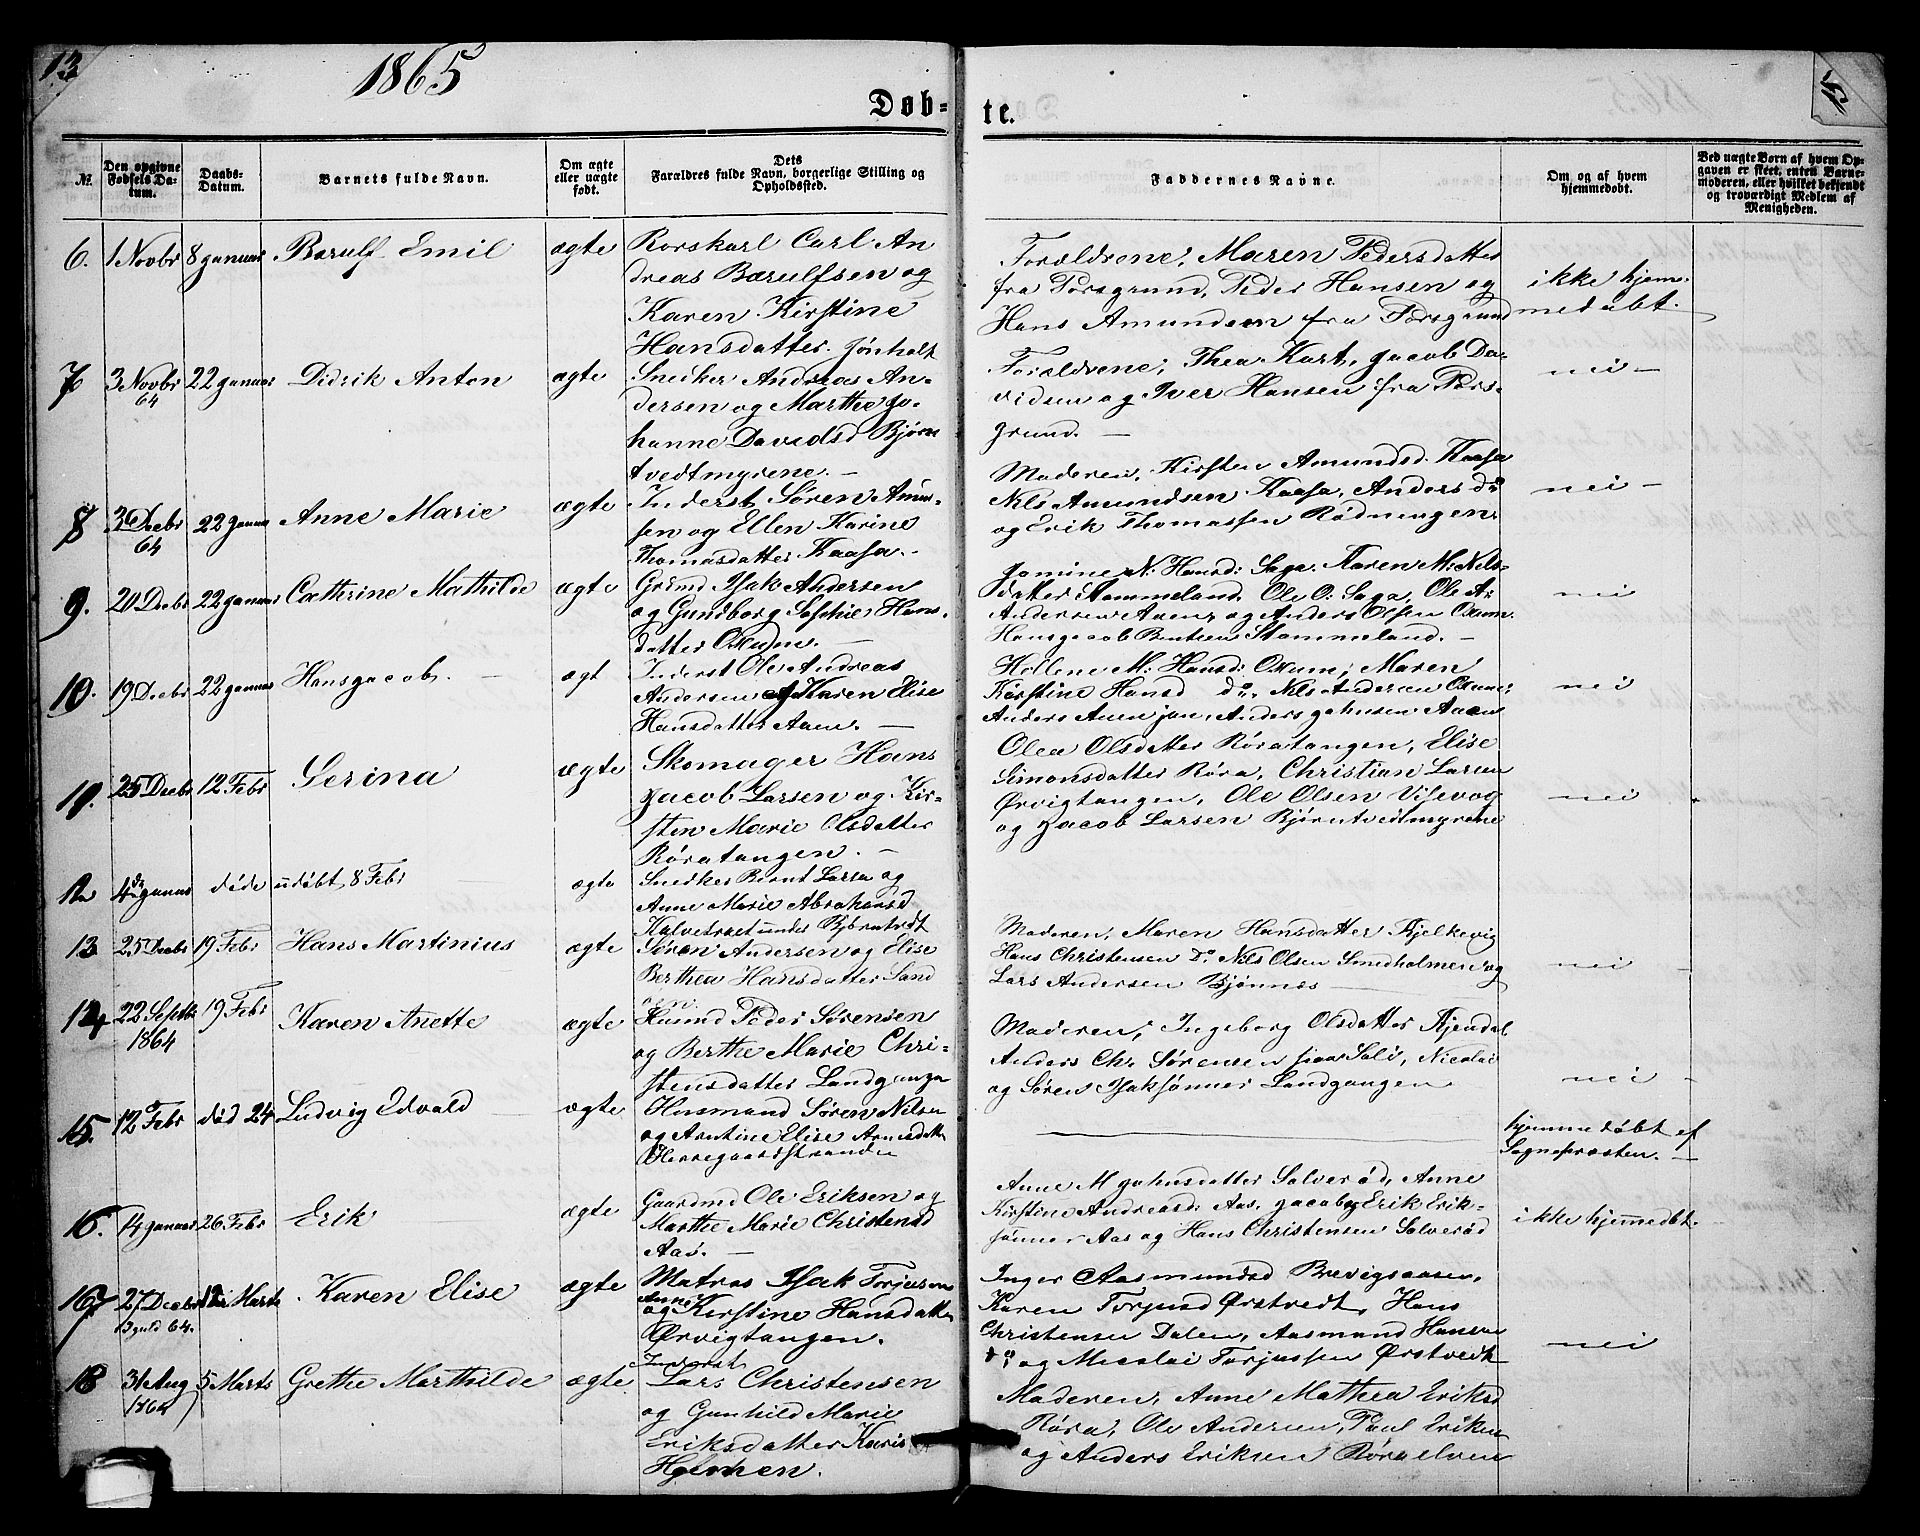 13
1865
Døb-
te.
№.
Den opgivne
Fødsels Da-
tum.
Daabs-
Datum.
Barnets fulde Navn.
Om ægte
eller uægte
født.
Dets
Forældres fulde Navn, borgerlige Stilling og
Opholdssted.
Faddernes Navne.
Om og af hvem
hjemmedøbt.
Ved uægte Børn af hvem Op-
gaven er skeet, enten Barne-
moderen, eller hvilket bekjendt
og troværdigt Medlem af
Menigheden.
6. 1 Novbr 8 Januar Barulf Emil ægte
Rorskarl Carl An
dreas Barulfsen og
Karen Kirstine
Hansdatter Jønholt
Forældrene, Maren Pedersdatter
fra Porsgrund, Peder Hansen og
Hans Amundsen fra Porsgrund
ikke hjem-
medøbt.
7 3 Novbr 64 22 Januar Didrik Anton ægte
Snedker Andreas An-
dersen og Marthe Jo-
hanne Davidsd Bjørn
tvedtmyrene. —
Forældrene, Thea Kort, Jacob Da-
vidsen og Iver Hansen fra Pors-
grund. —
nei —
8 3 Decbr 64 22 Januar Anne Marie ægte
Inderst Søren Amun-
sen og Ellen Karine
Thomasdatter Kaasa. —
Moderen, Kirsten Amundsd. Kaasa
Nils Amundsen Kaasa, Anders do
og Erik Thomassen Rødningen.
nei —
9. 20 Decbr 22 Januar Cathrine Mathilde ægte
Grbmd Isak Andersen
og Gundborg Sophie Hans-
datter Oxum. —
Jomine N. Hansd: Saga. Karen M: Nils-
datter Stammeland. Ole O: Saga, Ole A:
Andersen Aaen, og Anders Olsen Oxum.
Hans Jacob Bentsen Stammeland. —
nei
10. 19 Decbr 22 Januar Hans Jacob. — ægt
Inderst Ole Andreas
Andersen og Karen Elise
Hansdatter Aaen. —
Hellene M: Hansd: Oxum, Maren
Kirstine Hansd do., Nils Andersen Oxum,
Anders Aaen jun, Anders Johnsen Aaen
nei
11. 25 Decbr 12 Febr Serina ægte
Skomager Hans
Jacob Larsen og Kir-
sten Marie Olsdatter
Røratangen. —
Olea Olsdatter Røratangen, Elise
Simonsdatter Røra, Christian Larsen
Ørvigtangen, Ole Olsen Vissevog
og Jacob Larsen Bjørntvedtmyrene
nei
12 4de Januar døde udøbt 8 Febr ægte
Snedker Bernt Larsen og
Anne Marie Abrahamsd
Kalvetraet under Bjørntvedt
13 25 Decbr 19 Febr Hans Martinius ægte
Søren Andersen og Elise
Berthea Hansdatter Sand
øen.
Moderen, Maren Hansdatter Kjelkevig
Hans Christensen Do. Nils Olsen Smedholmen og
Lars Andersen Bjønnes —
nei —
14 22 Septbr 1864 19 Febr Karen Anette ægte
Husmd Peder Sørensen
og Berthe Marie Chri-
stensdatter Landgangen
Moderen, Ingeborg Olsdatter Kjendal
Anders Ch. Sørensen paa Søli, Nicolai
og Søren Isaksønner Landgangen
nei —
15. 12 Febr død 24 Ludvig Edvald — ægte
Husmand Søren Nilsen
og Arntine Elise Arnesdatter
Herregaardstranden
hjemmedøbt af
Sognepræsten. —
16. 14 Januar 26 Febr Erik ægte
Gaardmd Ole Eriksen og
Marthe Marie Christensd
Aas. —
Anne M Johnsdatter Solverød, Anne
Kirstine Andreasd: Aas. Jacob og Erik Erik-
sønner Aas og Hans Christensen Solverød
ikke hjemmedøbt.
17 27 Decbr 64. 12 Marts Karen Elise ægte
Matros Isak Torjusen
og Anne Kirstine Hansdatter
Ørvigtangen.
Inger Aasmundsd Brevigsaasen,
Karen Torjusd Ørstvedt, Hans
Christensen Dalen, Aasmund Hansen
do, og Nicolai Torjussen Ørstvedt
nei
18 31 Aug 1864 5 Marts Grethe Marthilde ægte
Inderst
Lars Christensen
og Gunhild Marie
Eriksdatter Karis
Holmen.
Moderen, Anne Mathea Eriksd
Røra, Ole Andersen, Paul Eriksen
og Anders Eriksen Røraelven